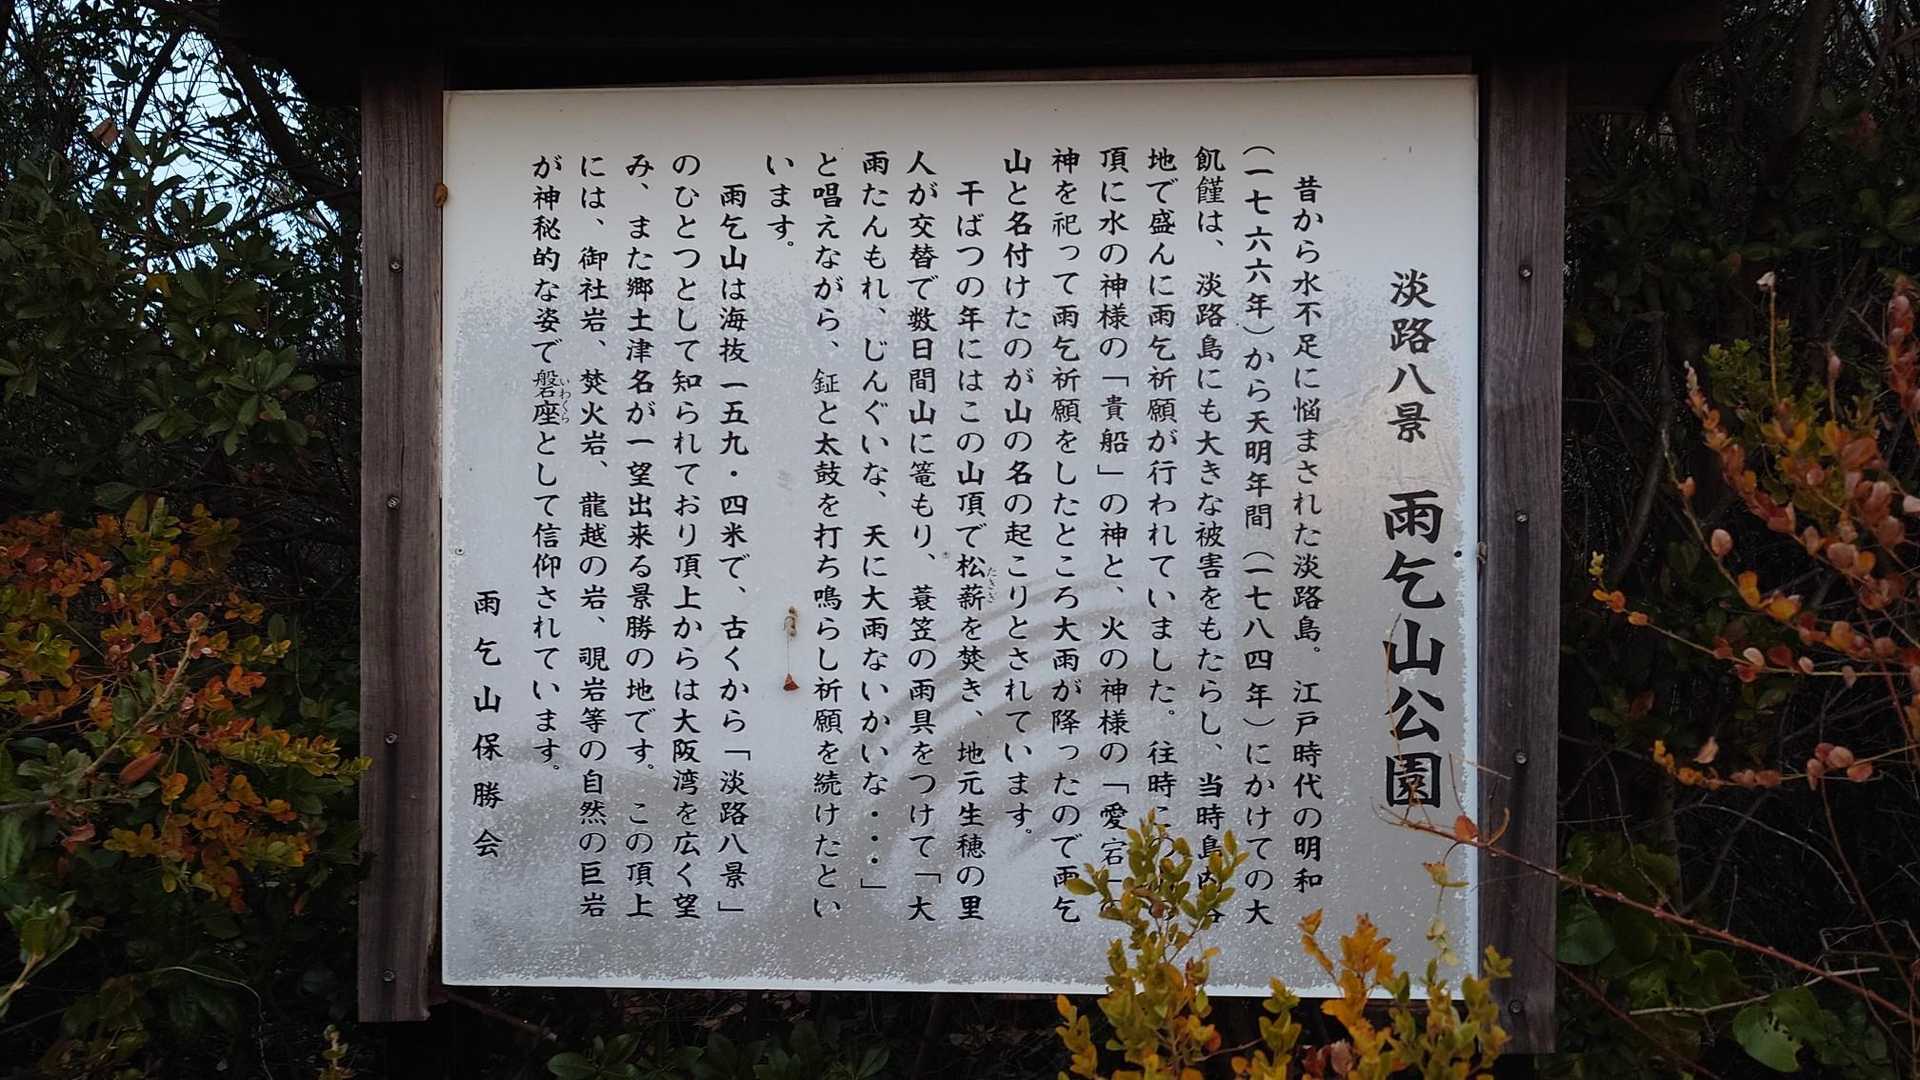 淡路八景 雨乞山公園
昔から水不足に悩まされた淡路島。江戸時代の明和
(一七六六年)から天明年間(一七八四年)にかけての大
飢饉は、淡路島にも大きな被害をもたらし、当時島内
地で盛んに雨乞祈願が行われていました。往時この
頂に水の神様の「貴船」の神と、火の神様の「愛宕」の
神を祀って雨乞祈願をしたところ大雨が降ったので雨乞
山と名付けたのが山の名の起こりとされています。
干ばつの年にはこの山頂で松薪を焚き、地元生穂の里
たきぎ
人が交替で数日間山に篭もり、蓑笠の雨具をつけて「大
雨たんもれ、じんぐいな、天に大雨ないかいな・・・」
と唱えながら、鉦と太鼓を打ち鳴らし祈願を続けたとい
います。
雨乞山は海抜一五九・四米で、古くから「淡路八景」
のひとつとして知られており頂上からは大阪湾を広く望
み、また郷土津名が一望出来る景勝の地です。この頂上
には、御社岩、焚火岩、龍越の岩、覗岩等の自然の巨岩
が神秘的な姿で磐座として信仰されています。
いわくら
雨乞山保勝会